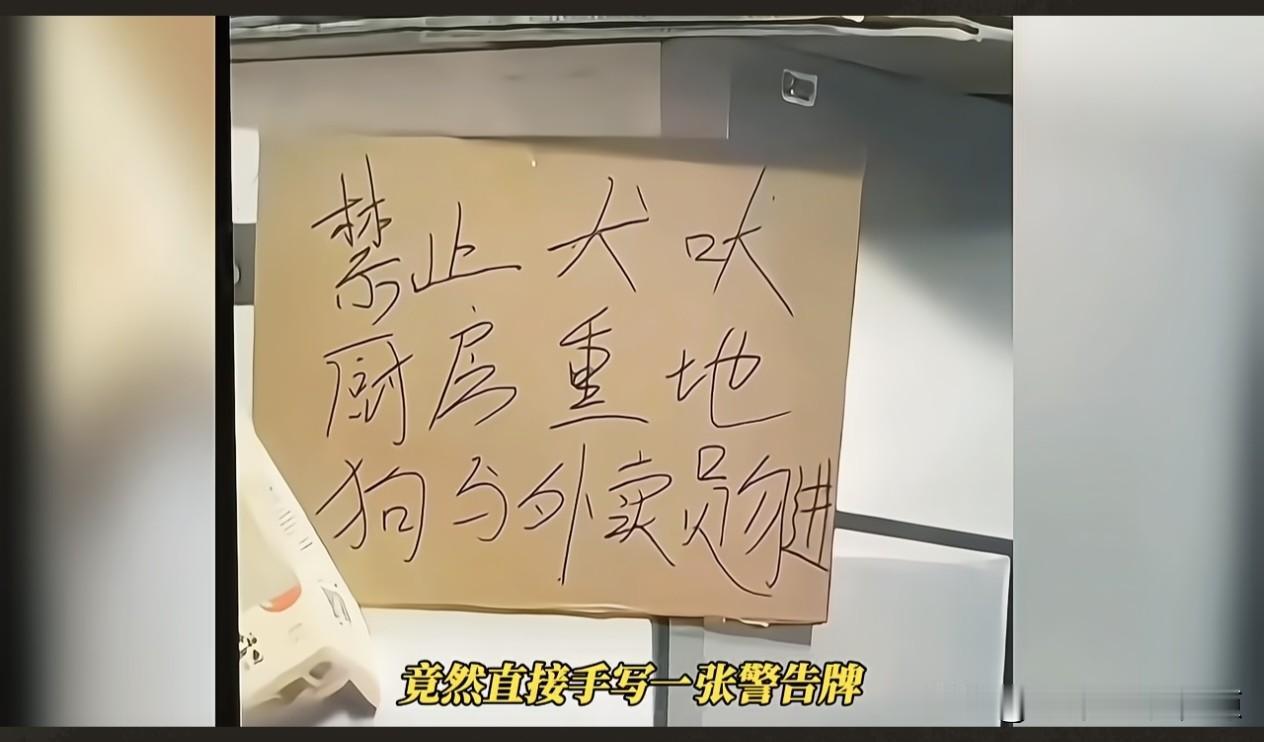 禁止犬吠
厨房重地
狗与外卖员勿进
竟然直接手写一张警告牌